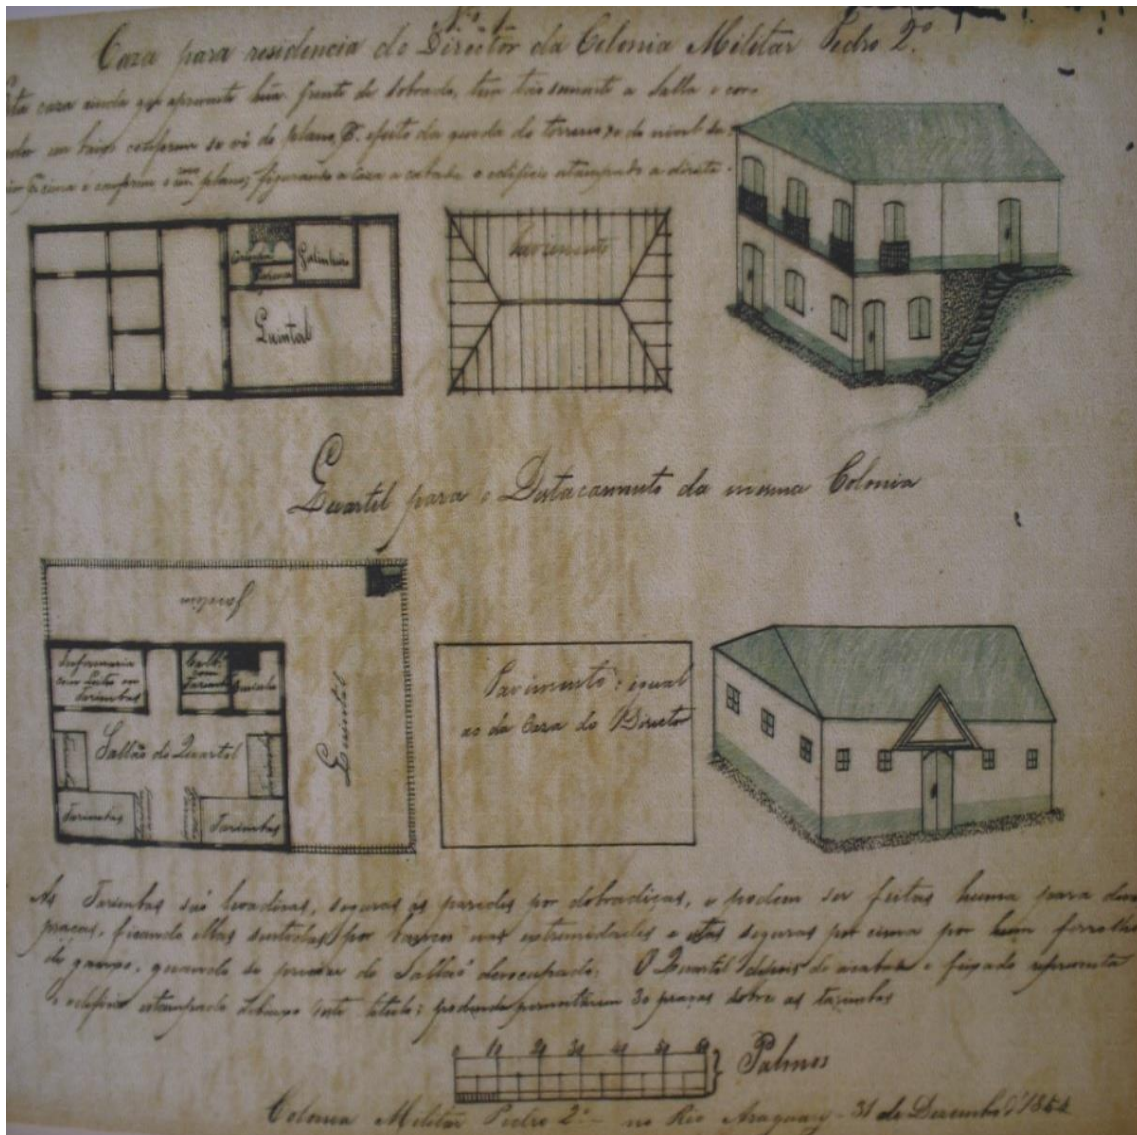 Nº 1
Caza para residencia do Director da Colonia Militar Pedro 2º.
Esta caza ainda que aprezente hũa frente de sobrado, tem tão somente a salla e corre-
dor em baixo conforme se vê do plano, effeito da queda do terreno do nivel de
cima e conforme plano; figurando a caza acabada o edificio estampado a direita.
Cozinha
Galinheiro
Quintal
Pavimento
Quartel para o Destacamento da mesma Colonia
Jardim
Enfermaria
com Leitos ou
Tarimbas
com
Tarimba
Quintal
Sallão do Quartel
Tarimbas
Tarimbas
Pavimento: igual
ao da Caza do Director
As Tarimbas são levadiças, seguras ás paredes por dobradiças, e podem ser feitas huma para duas
praças, ficando ellas nas extremidades e estas seguras por cima por hum ferrolho
de gampo, quando se precizar do Sallão desocupado. O Quartel depois de acabado e representa
o edificio estampado debaixo deste titulo; podendo pernoitarem 30 praças sobre as tarimbas
0 10 20 30 40 50 60 Palmos
Colonia Militar Pedro 2º - no Rio Araguary - 31 de Dezembro